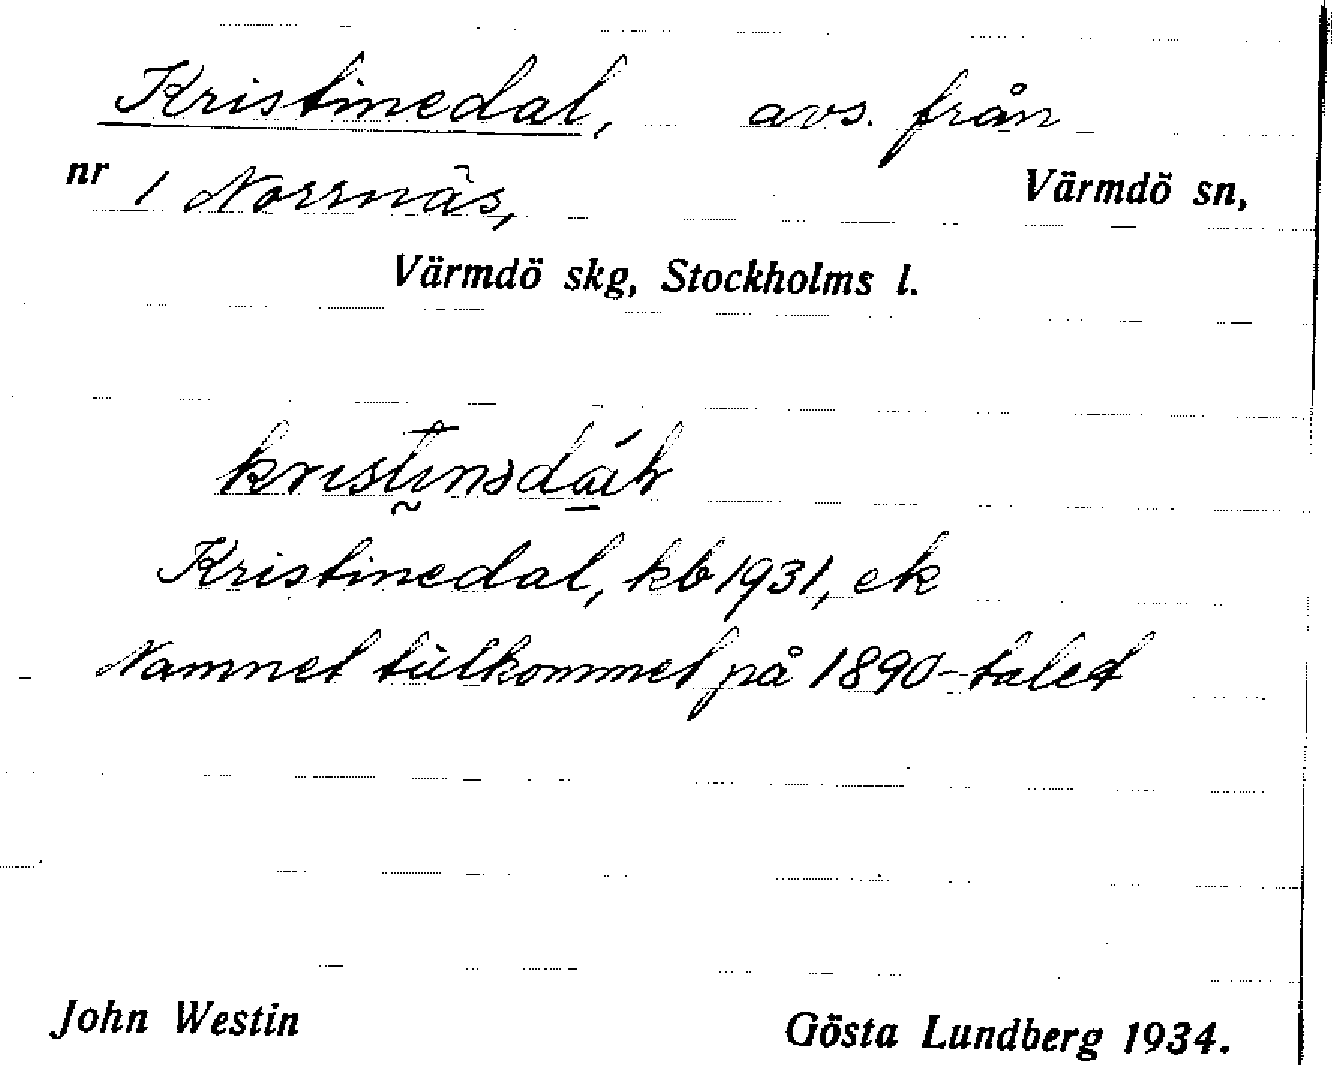 Kristinedal, avs. från
nr 1 Norrnäs, Värmdö sn,
Värmdö skg, Stockholms l.
Kristinedal, kb 1931, ek
Namnet tillkommet på 1890-talet
John Westin Gösta Lundberg 1934.